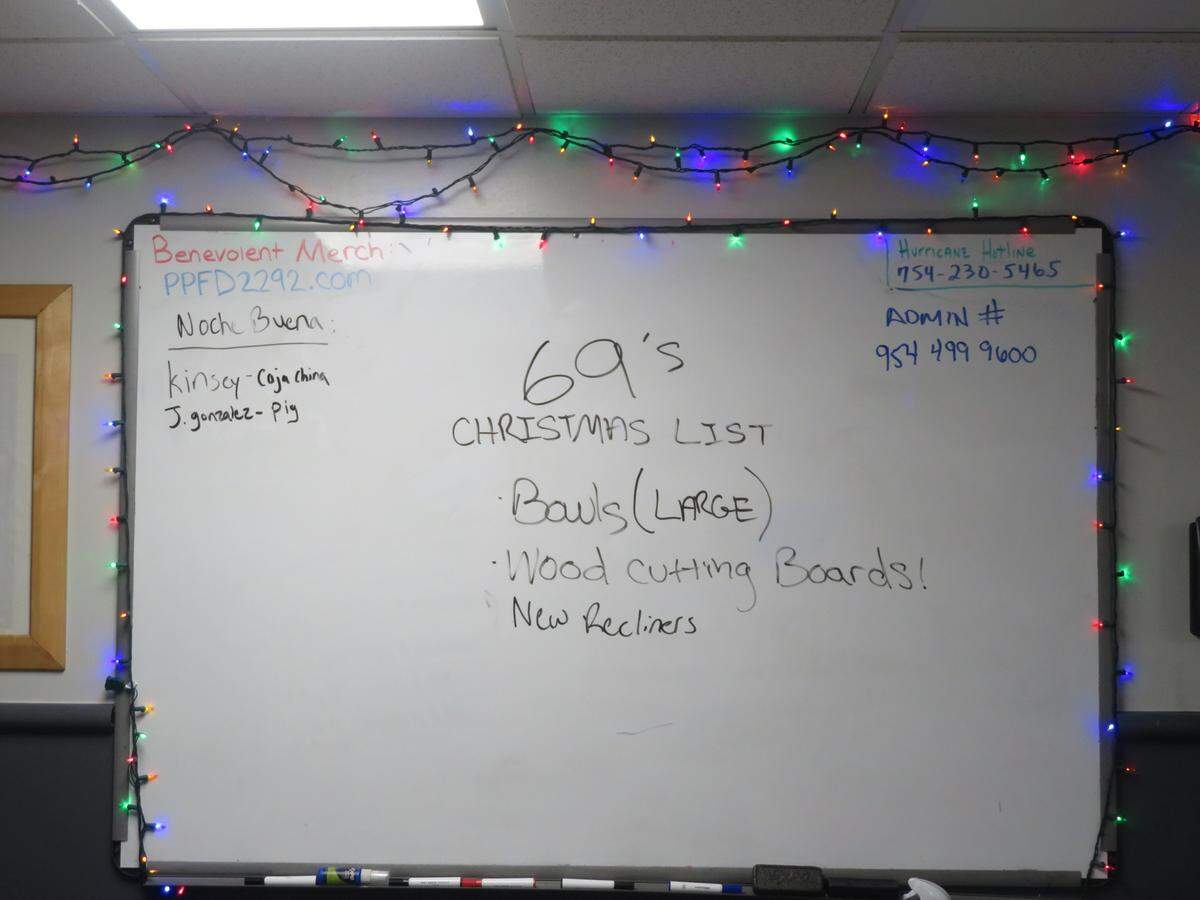 Benevolent Merch:
PPFD2292.com
Noche Buena:
Kinsey - Caja China
J. gonzalez - Pig
Hurricane Hotline
754-230-5465
ADMIN #
954 499 9600
69's
CHRISTMAS LIST
· Bowls (LARGE)
· Wood cutting Boards!
New Recliners